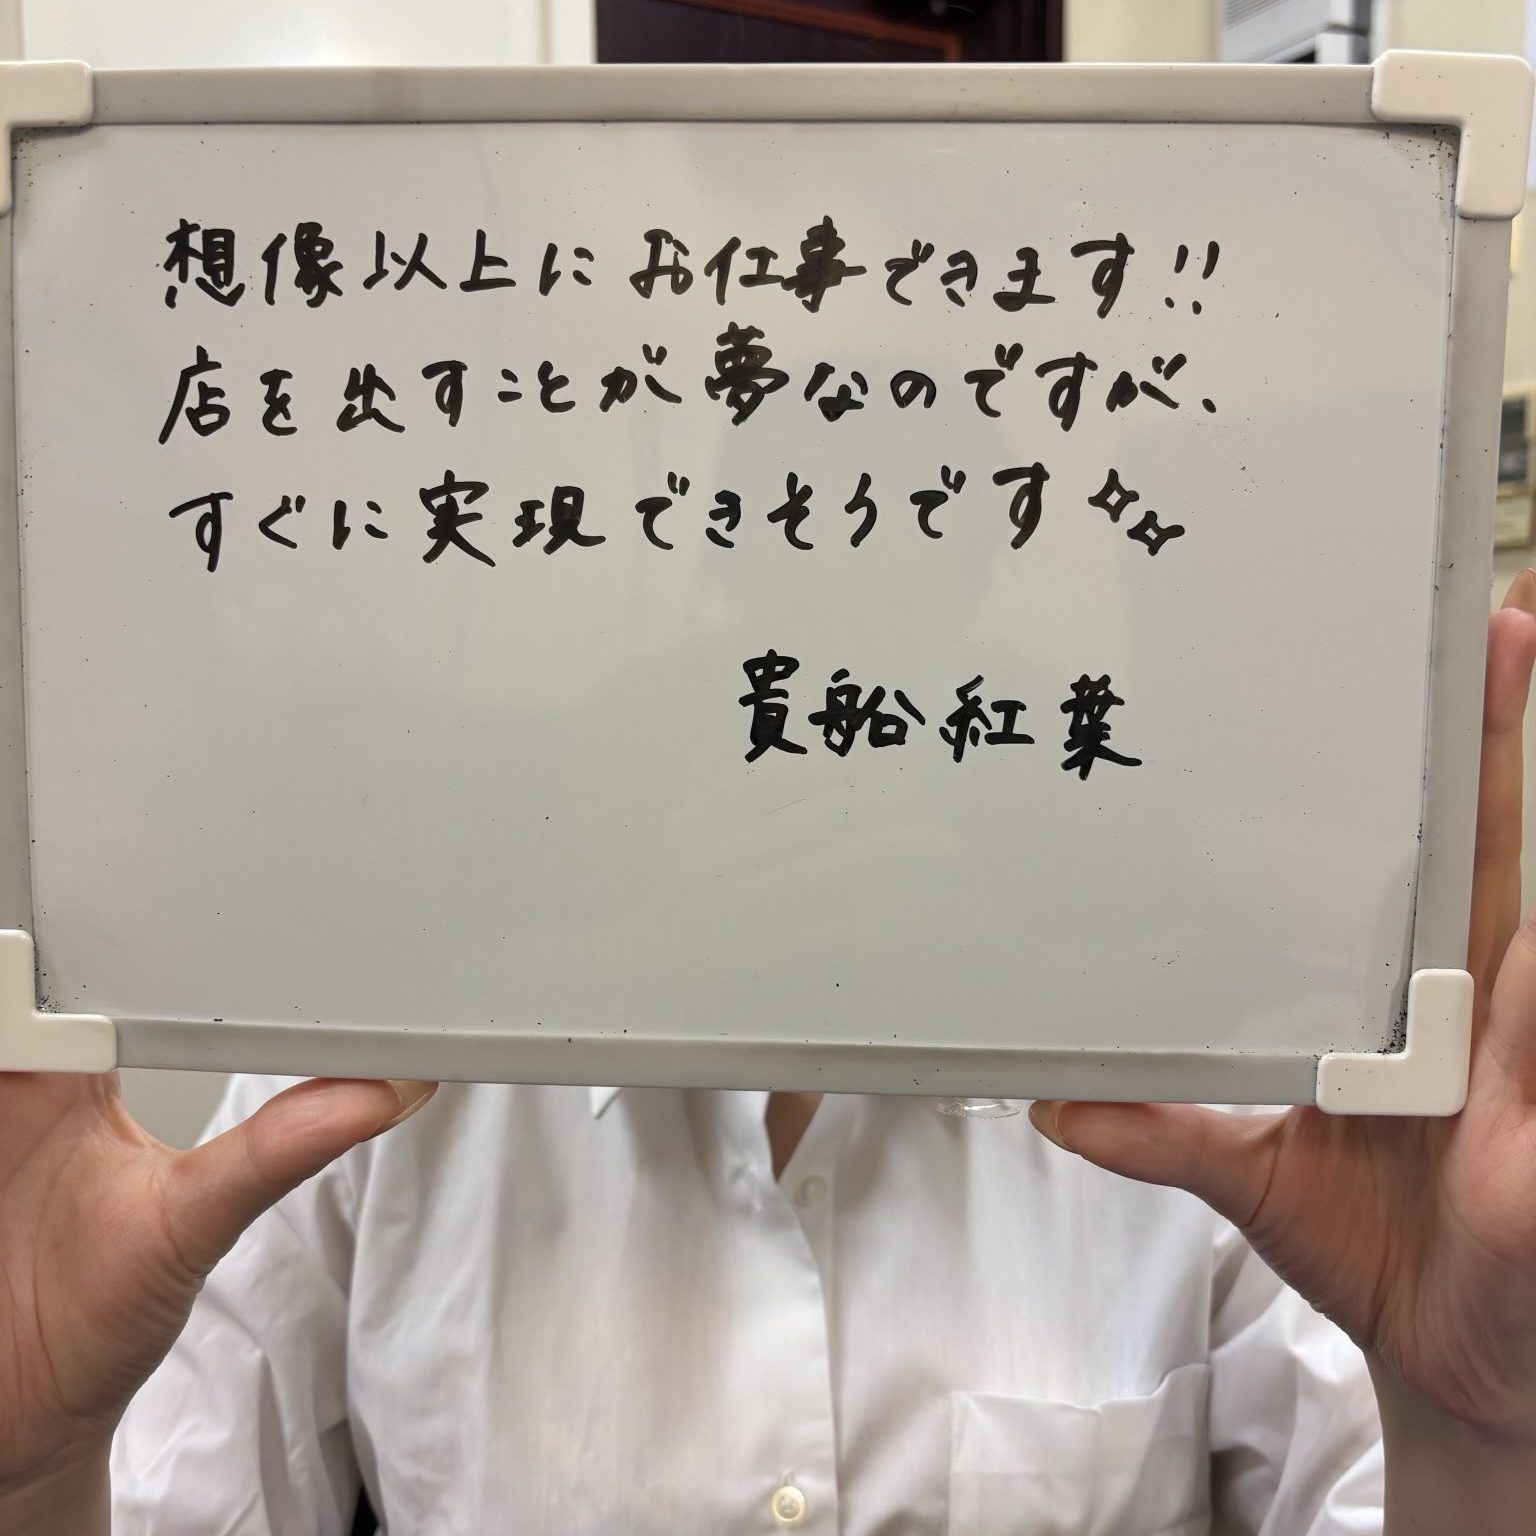 想像以上にお仕事できます!!
店を出すことが夢なのですが、
すぐに実現できそうです✧✧
貴船紅葉